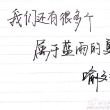 我们还有很多个
属于蓝雨的夏
喻